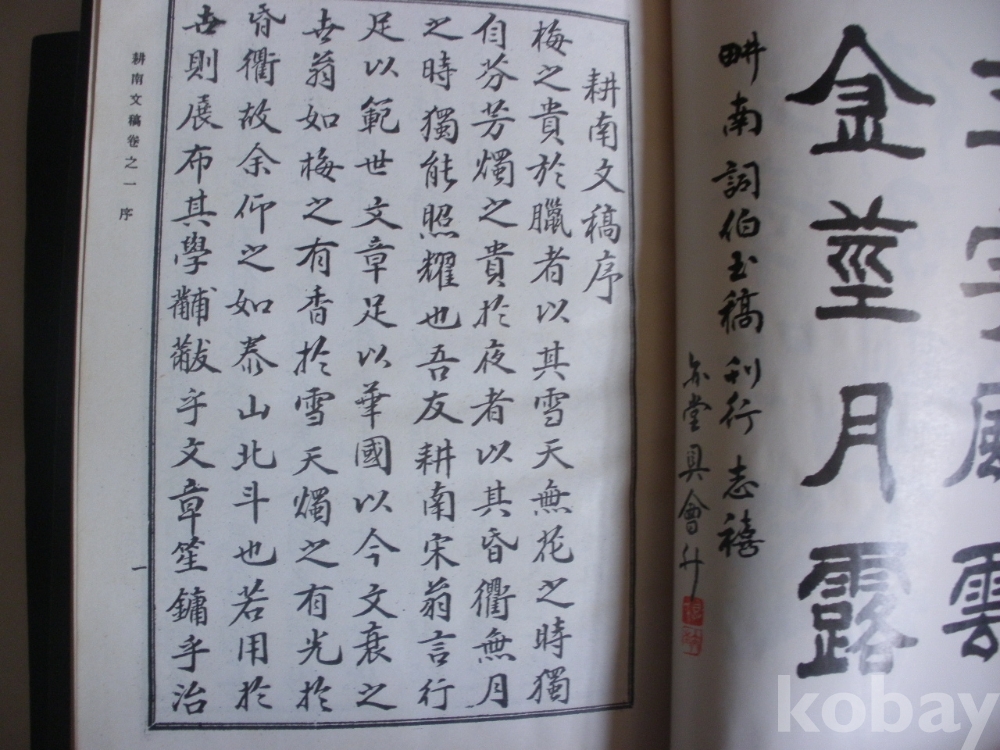 金莖月露
畊南詞伯玉稿刊行志禧
耕南文稿序
梅之貴於臘者以其雪天無花之時獨
自芬芳燭之貴於夜者以其昏衢無月
之時獨能照耀也吾友耕南宋翁言行
足以範世文章足以華國以今文衰之
世翁如梅之有香於雪天燭之有光於
昏衢故余仰之如泰山北斗也若用於
世則展布其學黼黻乎文章笙鏞乎治
耕南文稿卷之一 序
一
kobay